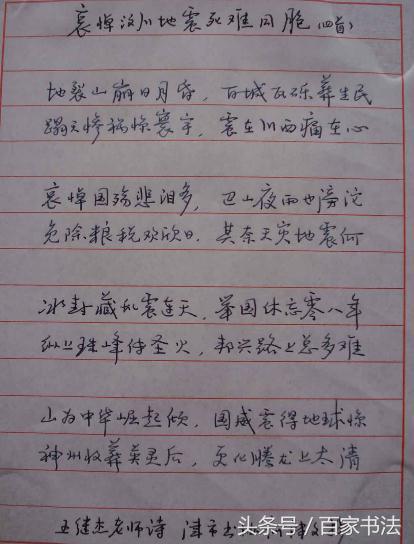 哀悼汶川地震死难同胞(四首)
地裂山崩日月昏,百城瓦砾葬生民
蹋天惨祸惊寰宇,震在川西痛在心
哀悼国殇悲泪多,巴山夜雨也滂沱
免除粮税欢欣日,其奈天灾地震何
冰封藏乱震连天,举国休忘零八年
纵上珠峰传圣火,邦兴路上总多难
山为中华崛起倾,国威震得地球惊
神州收葬英灵后,更化腾龙上太清
王继杰老师诗 津市书
头条号/百家书法